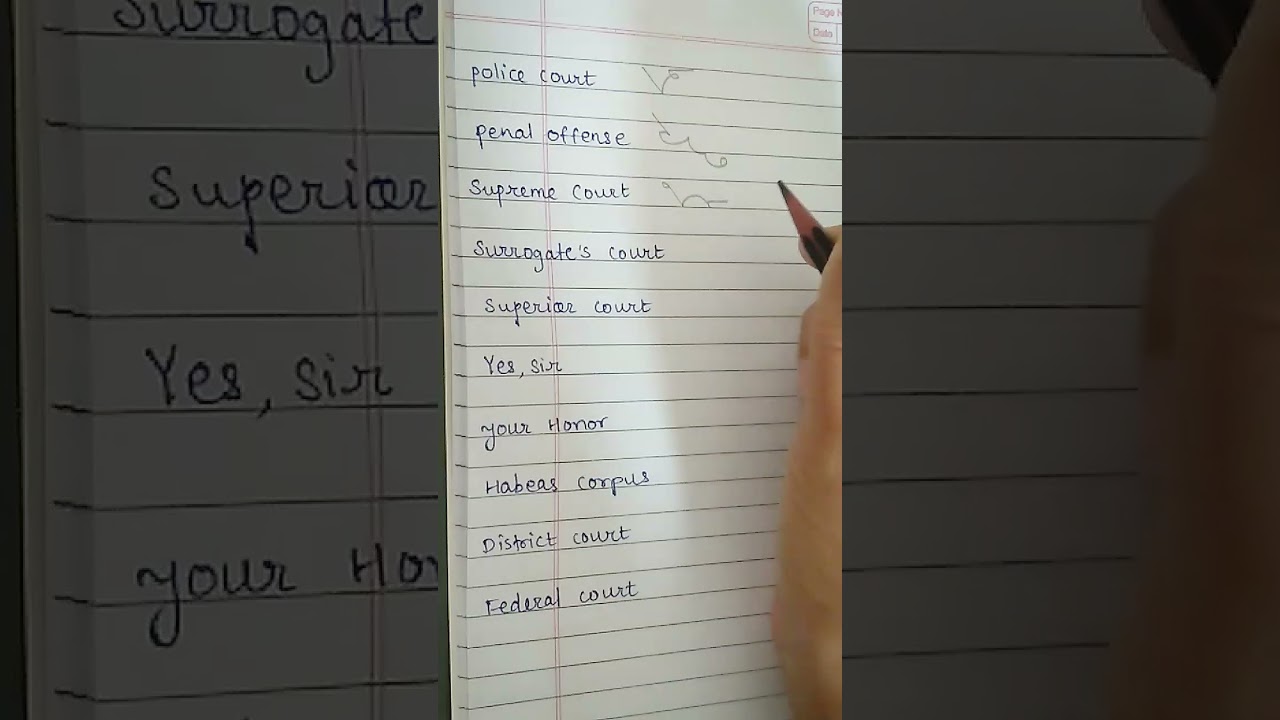 Surrogate
Superior
Yes, sir
your Hon
Page N
Date
police court
penal offense
Supreme court
Surrogate's court
Superior court
Yes, sir
your Honor
Habeas corpus
District court
Federal court